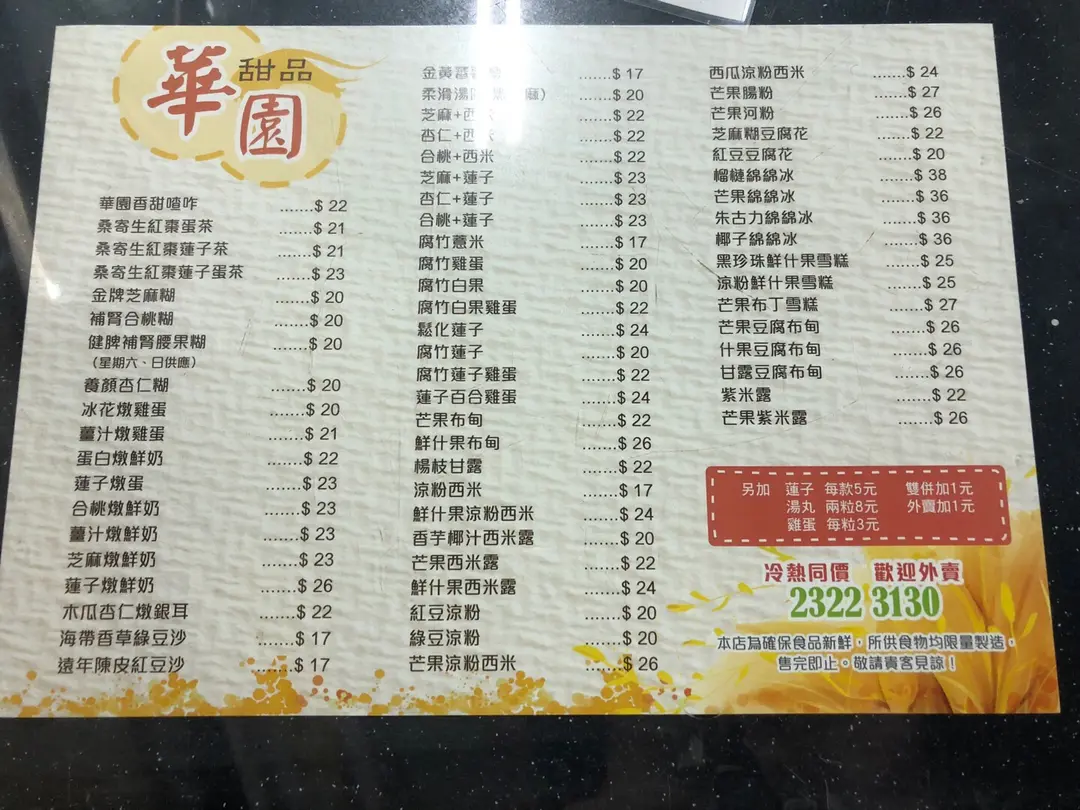 華園
甜品
華園香甜喳咋 .......$ 22
桑寄生紅棗蛋茶 .......$ 21
桑寄生紅棗蓮子茶 .......$ 21
桑寄生紅棗蓮子蛋茶 .......$ 23
金牌芝麻糊 .......$ 20
補腎合桃糊 .......$ 20
健脾補腎腰果糊 .......$ 20
(星期六、日供應)
養顏杏仁糊 .......$ 20
冰花燉雞蛋 .......$ 20
薑汁燉雞蛋 .......$ 21
蛋白燉鮮奶 .......$ 22
蓮子燉蛋 .......$ 23
合桃燉鮮奶 .......$ 23
薑汁燉鮮奶 .......$ 23
芝麻燉鮮奶 .......$ 23
蓮子燉鮮奶 .......$ 26
木瓜杏仁燉銀耳 .......$ 22
海帶香草綠豆沙 .......$ 17
遠年陳皮紅豆沙 .......$ 17
金黃蕃 .......$ 17
柔滑湯 .......$ 20
芝麻+西米 .......$ 22
杏仁+西米 .......$ 22
合桃+西米 .......$ 22
芝麻+蓮子 .......$ 23
杏仁+蓮子 .......$ 23
合桃+蓮子 .......$ 23
腐竹薏米 .......$ 17
腐竹雞蛋 .......$ 20
腐竹白果 .......$ 20
腐竹白果雞蛋 .......$ 22
鬆化蓮子 .......$ 24
腐竹蓮子 .......$ 20
腐竹蓮子雞蛋 .......$ 22
蓮子百合雞蛋 .......$ 24
芒果布甸 .......$ 22
鮮什果布甸 .......$ 26
楊枝甘露 .......$ 22
涼粉西米 .......$ 17
鮮什果涼粉西米 .......$ 24
香芋椰汁西米露 .......$ 20
芒果西米露 .......$ 22
鮮什果西米露 .......$ 24
紅豆涼粉 .......$ 20
綠豆涼粉 .......$ 20
芒果涼粉西米 .......$ 26
西瓜涼粉西米 .......$ 24
芒果腸粉 .......$ 27
芒果河粉 .......$ 26
芝麻糊豆腐花 .......$ 22
紅豆豆腐花 .......$ 20
榴槤綿綿冰 .......$ 38
芒果綿綿冰 .......$ 36
朱古力綿綿冰 .......$ 36
椰子綿綿冰 .......$ 36
黑珍珠鮮什果雪糕 .......$ 25
涼粉鮮什果雪糕 .......$ 25
芒果布丁雪糕 .......$ 27
芒果豆腐布甸 .......$ 26
什果豆腐布甸 .......$ 26
甘露豆腐布甸 .......$ 26
紫米露 .......$ 22
芒果紫米露 .......$ 26
另加 蓮子 每款5元 雙併加1元
湯丸 兩粒8元 外賣加1元
雞蛋 每粒3元
冷熱同價 歡迎外賣
2322 3130
本店為確保食品新鮮，所供食物均限量製造，
售完即止。敬請貴客見諒！